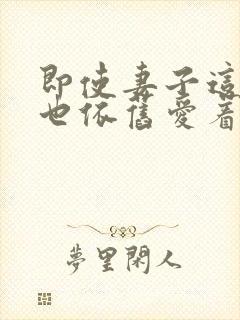 即使妻子這
也依舊愛着
夢里閑人